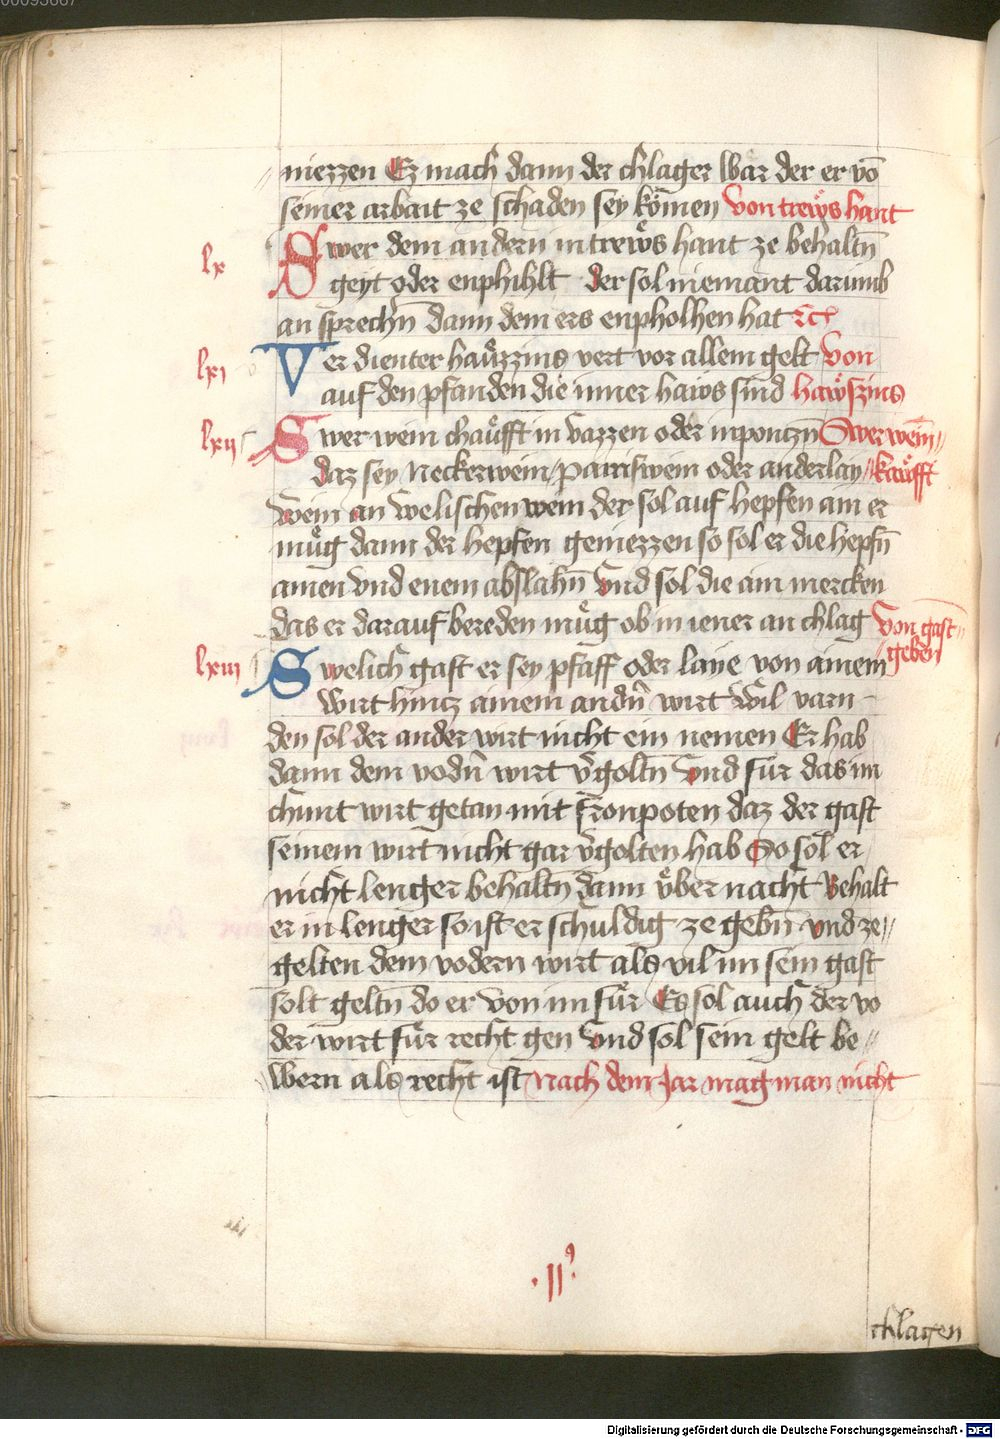 niezzen Ez mach dann der chlager war der er vō
seiner arbait ze schaden sey kömen Von trewͦs hant
lx Swer dem andern in trewͦs hant ze behaltn̄
geyt oder enphihlt der sol niemant darumb
an sprechn̄ dann dem ers enpholhen hat ꝛcᷓ
lxi Ver dienter haüzzins vert vor allem gelt Von
auf den pfanden die inner haws sind hawſzins
lxii Swer wein chauͤfft in vazzen oder in pontzn̄ Swer wein̄
daz sey Neckerwein / pâtriswein oder anderlay kauͤfft
wein an welischen wein der sol auf hepfen am er
muͤg dann der hepfen geniezzen so sol er die hepfn̄
amen vnd enem abslahn̄ Vnd sol die am mercken
das er darauf bereden muͤg ob in iener an chlag Von gast
lxiii Swelich gast er sey pfaff oder laye von ainem geben
wirt hintz ainem andn̄ wirt wil varn
den sol der ander wirt nicht ein nemen Er hab
dann dem vodn̄ wirt v̄goltn̄ Vnd für das im
chunt wirt getan mit fronpoten daz der gast
seinem wirt nicht gar v̄golten hab So sol er
nicht lenger behaltn̄ dann uͤber nacht Behalt
er in lenger so ist er schuldig ze gebn̄ vnd ze
gelten dem vodern wirt als vil im sein gast
solt geltn̄ do er von im fuͤr Es sol auch der vo
der wirt fuͤr recht gen Vnd sol sein gelt be
wern als recht ist Nach dem Jar mag man nicht
· II⁹
chlagen
Digitalisierung gefördert durch die Deutsche Forschungsgemeinschaft - DFG